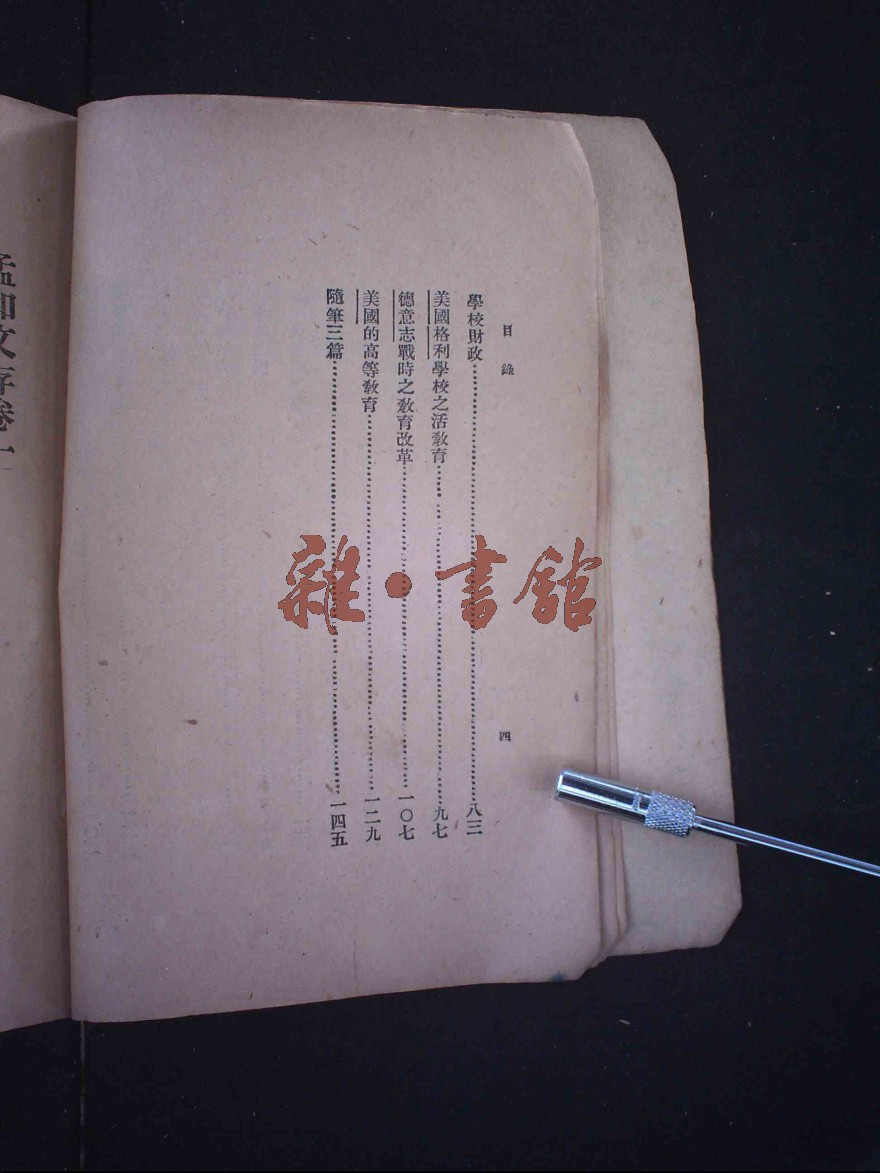 目錄 四
學校財政 八三
美國格利學校之活敎育 九七
德意志戰時之敎育改革 一〇七
美國的高等敎育 一二九
隨筆三篇 一四五
孟和文存卷一
雜·書館